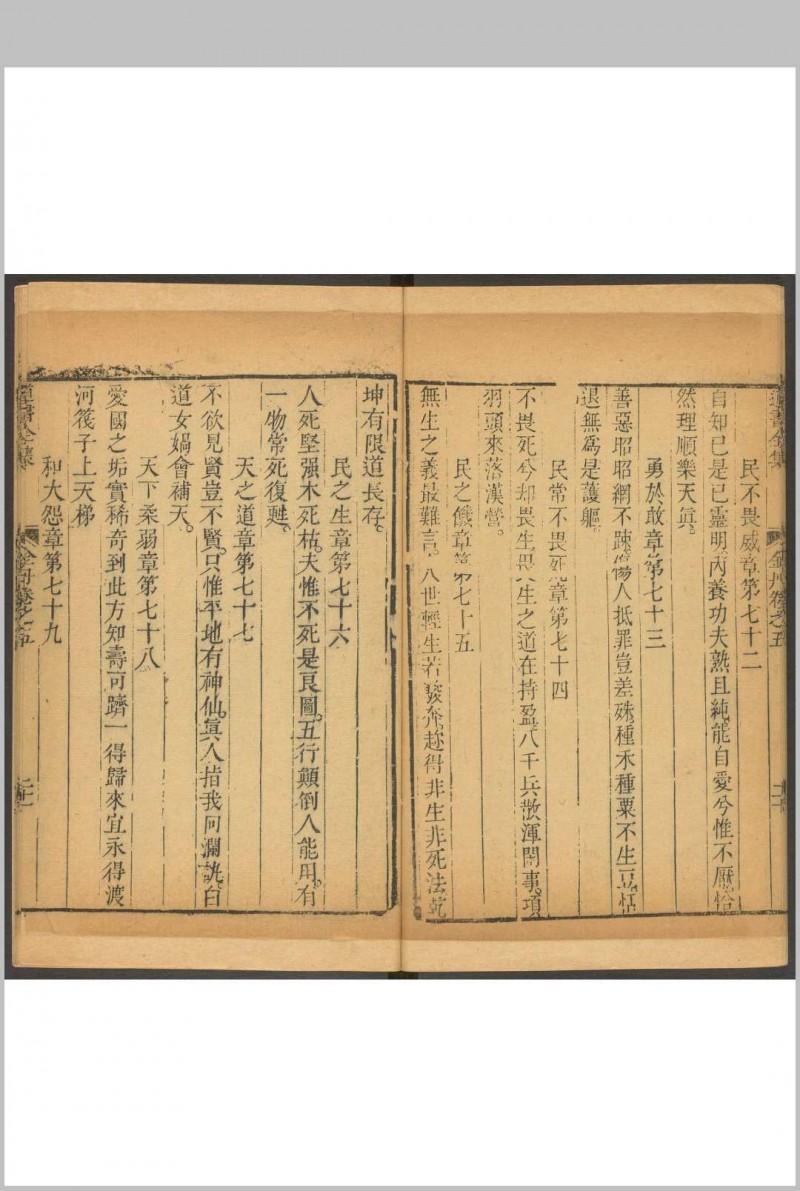 道書全集
金丹卷之五
民不畏威章第七十二
自知已是已靈明內養功夫熟且純能自愛兮惟不厭恰
然理順樂天真
勇於敢章第七十三
善惡昭昭網不踈傷人抵罪豈差殊種禾種粟不生豆恬
退無爲是護軀
民常不畏死章第七十四
不畏死兮却畏生畏生之道在持盈八千兵散渾閑事項
羽頭來落漢營
民之饑章第七十五
無生之義最難言人世輕生若發奔趂得非生非死法乾
坤有限道長存
民之生章第七十六
人死堅强木死枯夫惟不死是良圖五行顚倒人能用有
一物常死復甦
天之道章第七十七
不欲見賢豈不賢只惟平地有神仙眞人指我何瀾說白
道女媧會補天
天下柔弱章第七十八
愛國之垢實稀奇到此方知壽可躋一得歸來宜永得渡
河筏子上天梯
和大怨章第七十九
道書全集
金丹卷之五
二十一